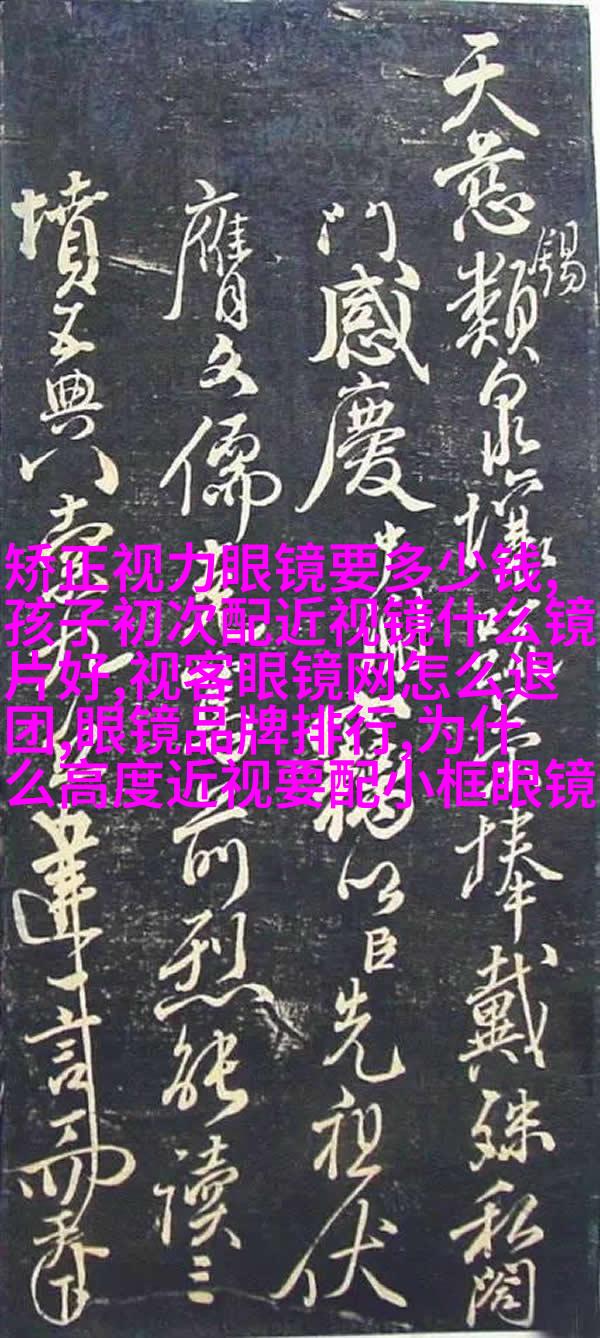 天慈錫類泉壤捧戴殊私闔
門感慶以臣先祖伏
膺文儒前烈能讀三
墳五典八索達言
矫正视力眼镜要多少钱,
孩子初次配近视镜什么镜
片好,视客眼镜网怎么退
团,眼镜品牌排行,为什
么高度近视要配小框眼镜